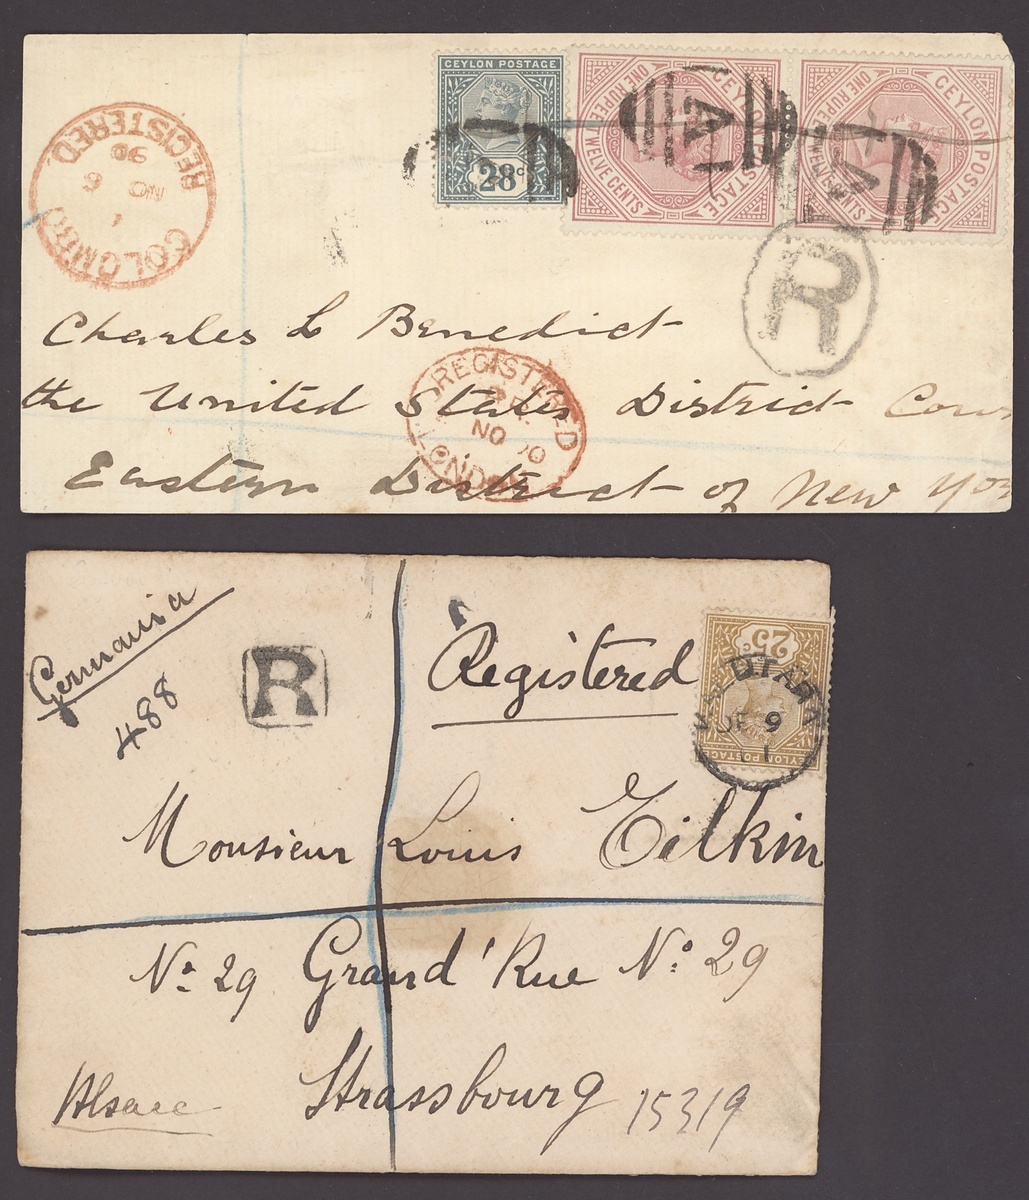 CEYLON POSTAGE
28c
CEYLON POSTAGE
ONE RUPEE TWELVE CENTS
CEYLON POSTAGE
ONE RUPEE TWELVE CENTS
REGISTERED
NO 6
90
COLOMBO
R
Charles L Benedict
the United States District Cour
REGISTERED
NO
LONDON
Eastern District of New Yor
Germania
488
R
Registered
25c
CEYLON POSTAGE
DE 9
Monsieur Louis Eilkin
No 29 Grand' Rue No 29
Strassbourg
Alsace
15319